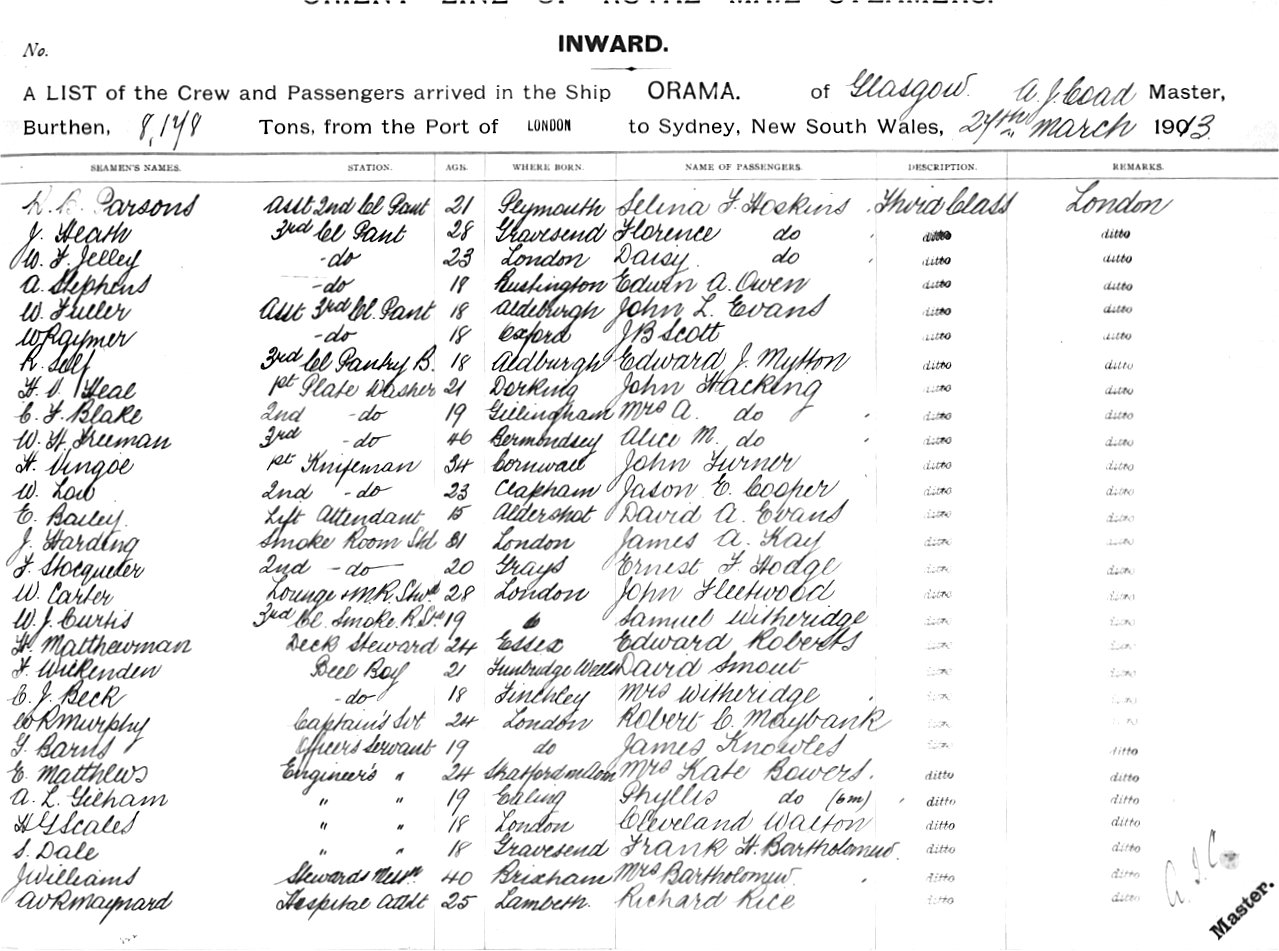 ORIENT LINE OF ROYAL MAIL STEAMERS.
No.
INWARD.
A LIST of the Crew and Passengers arrived in the Ship ORAMA. of Glasgow. A. J. Coad Master,
Burthen, 8,178 Tons, from the Port of LONDON to Sydney, New South Wales, 27th March 1913.
SEAMEN'S NAMES. STATION. AGE. WHERE BORN. NAME OF PASSENGERS. DESCRIPTION. REMARKS.
Parsons Asst 2nd Cl Pant 21 Plymouth Selina F. Hoskins Third Class London
J. Heath 3rd Cl Pant 28 Gravesend Florence do ditto ditto
W. F. Jelley -do 23 London Daisy do ditto ditto
A. Stephens -do 18 Rustington Edwin A. Owen ditto ditto
W. Fuller Asst 3rd Cl. Pant 18 Aldeburgh John L. Evans ditto ditto
W Raymer -do 18 Oxford J B Scott ditto ditto
R. Self 3rd Cl Pantry B. 18 Aldburgh Edward J. Mytton ditto ditto
H. V. Heal 1st Plate Washer 21 Dorking John Hacking ditto ditto
C. F. Blake 2nd -do 19 Gillingham Mrs A. do ditto ditto
W. H. Freeman 3rd -do 46 Bermondsey Alice M. do ditto ditto
H. Vingoe 1st Knifeman 34 Cornwall John Turner ditto ditto
W. Low 2nd -do 23 Clapham Jason E. Cooper ditto ditto
E. Bailey. Lift Attendant 15 Aldershot David A. Evans ditto ditto
J. Harding Smoke Room Std 31 London James A. Kay ditto ditto
F. Stocqueler 2nd -do- 20 Grays Ernest F. Hodge ditto ditto
W. Carter Lounge & M.R. Stwd 28 London John Fleetwood ditto ditto
W. J. Curtis 3rd Cl. Smoke. R. Std 19 Samuel Witheridge ditto ditto
H. Matthewman Deck Steward 24 Essex Edward Roberts ditto ditto
F. Wickenden Bell Boy 21 Tunbridge Wells David Smout ditto ditto
C. J. Beck -do 18 Finchley Mrs Witheridge ditto ditto
Murphy Captain's Svt 24 London Robert C. Maybank ditto ditto
G. Barns Officers Servant 19 do James Knowles ditto ditto
E. Matthews Engineer's " 24 Stratford on Avon Mrs Kate Bowers. ditto ditto
A. L. Gilham " " 19 Ealing Phyllis do (6m) ditto ditto
H G Scales " " 18 London Cleveland Walton ditto ditto
S. Dale " " 18 Gravesend Frank H. Bartholomew. ditto ditto
J Williams Stewards Messn 40 Brixham Mrs Bartholomew. ditto ditto
Maynard Hospital Attdt 25 Lambeth. Richard Rice ditto ditto
Master.